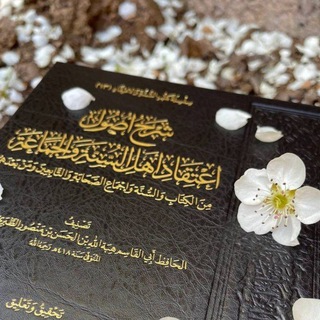 شرح أصول
اعتقاد أهل السنة والجماعة
من الكتاب والسنة وإجماع الصحابة والتابعين ومن بعدهم
تصنيف
الحافظ أبي القاسم هبة الله بن الحسن بن منصور الطبري
المتوفى سنة ٤١٨هـ رحمه الله
تحقيق وتعليق